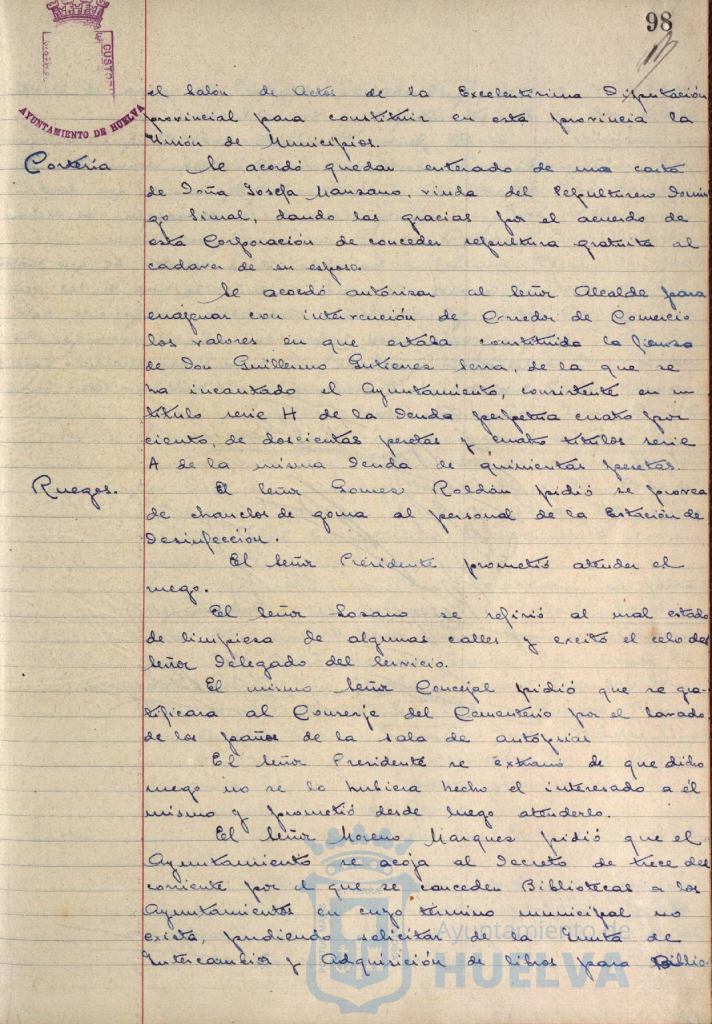 98
CUSTODI
AYUNTAMIENTO DE HUELVA
el Salón de Actos de la Excelentísima Diputación
provincial para constituir en esta provincia la
Unión de Municipios.
Cortesía
Se acordó quedar enterado de una carta
de Doña Josefa Manzano, viuda del Sepulturero Domin
go Simal, dando las gracias por el acuerdo de
esta Corporación de conceder sepultura gratuita al
cadaver de su esposo.
Se acordó autorizar al Señor Alcalde para
enagenar con intervención de Corredor de Comercio
los valores en que estaba constituida la fianza
de Don Guillermo Gutierrez Serra, de la que se
ha incautado el Ayuntamiento, consistente en un
titulo serie H de la Deuda perpetua cuatro por
ciento, de doscientas pesetas y cuatro titulos serie
A de la misma Deuda de quinientas pesetas.
Ruegos.
El Señor Gomez Roldán pidió se provea
de chanclos de goma al personal de la Estación de
Desinfección.
El Señor Presidente prometió atender el
ruego.
El Señor Lozano se refirió al mal estado
de limpieza de algunas calles y excitó el celo del
Señor Delegado del Servicio.
El mismo Señor Concejal pidió que se gra-
tificara al Conserje del Cementerio por el lavado
de los paños de la sala de autopsias
El Señor Presidente se extrañó de que dicho
ruego no se lo hubiera hecho el interesado a él
mismo y prometió desde luego atenderlo.
El Señor Moreno Marquez pidió que el
Ayuntamiento se acoja al Decreto de trece del
corriente por el que se conceden Bibliotecas a los
Ayuntamientos en cuyo término municipal no
exista, pudiendo solicitar de la Junta de
Intercambio y Adquisición de libros para Biblio-
Ayuntamiento de
HUELVA